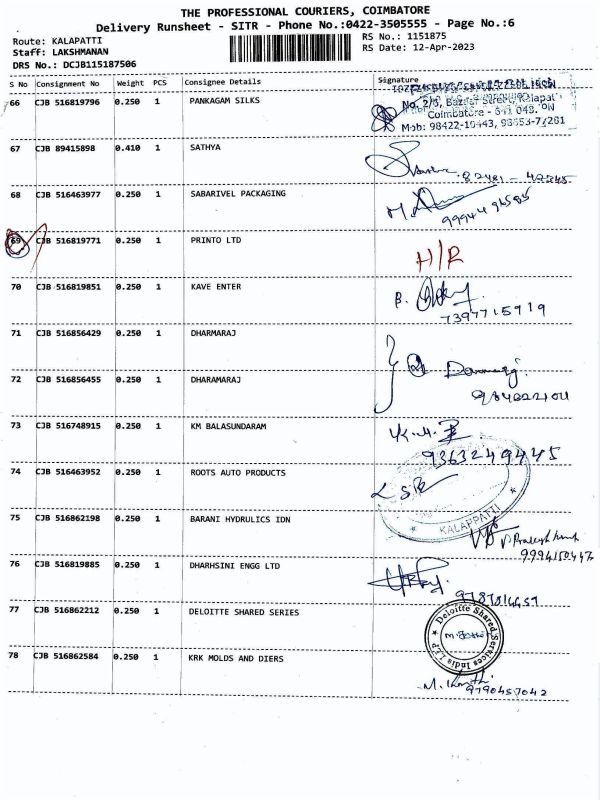 THE PROFESSIONAL COURIERS, COIMBATORE
Delivery Runsheet - SITR - Phone No.:0422-3505555 - Page No.:6
Route: KALAPATTI RS No.: 1151875
Staff: LAKSHMANAN RS Date: 12-Apr-2023
DRS No.: DCJB115187506
S No Consignment No Weight PCS Consignee Details Signature
66 CJB 516819796 0.250 1 PANKAGAM SILKS
No. 2/6, Bazaar Street, Kalapatti
Coimbatore - 641 048.
67 CJB 89415898 0.410 1 SATHYA
68 CJB 516463977 0.250 1 SABARIVEL PACKAGING
69 CJB 516819771 0.250 1 PRINTO LTD H/R
70 CJB 516819851 0.250 1 KAVE ENTER
7397715919
71 CJB 516856429 0.250 1 DHARMARAJ
72 CJB 516856455 0.250 1 DHARAMARAJ
73 CJB 516748915 0.250 1 KM BALASUNDARAM
9363249445
74 CJB 516463952 0.250 1 ROOTS AUTO PRODUCTS
KALAPPATTI
75 CJB 516862198 0.250 1 BARANI HYDRULICS IDN
76 CJB 516819885 0.250 1 DHARHSINI ENGG LTD
77 CJB 516862212 0.250 1 DELOITTE SHARED SERIES
Deloitte Shared Services India LLP
78 CJB 516862584 0.250 1 KRK MOLDS AND DIERS
9790457042